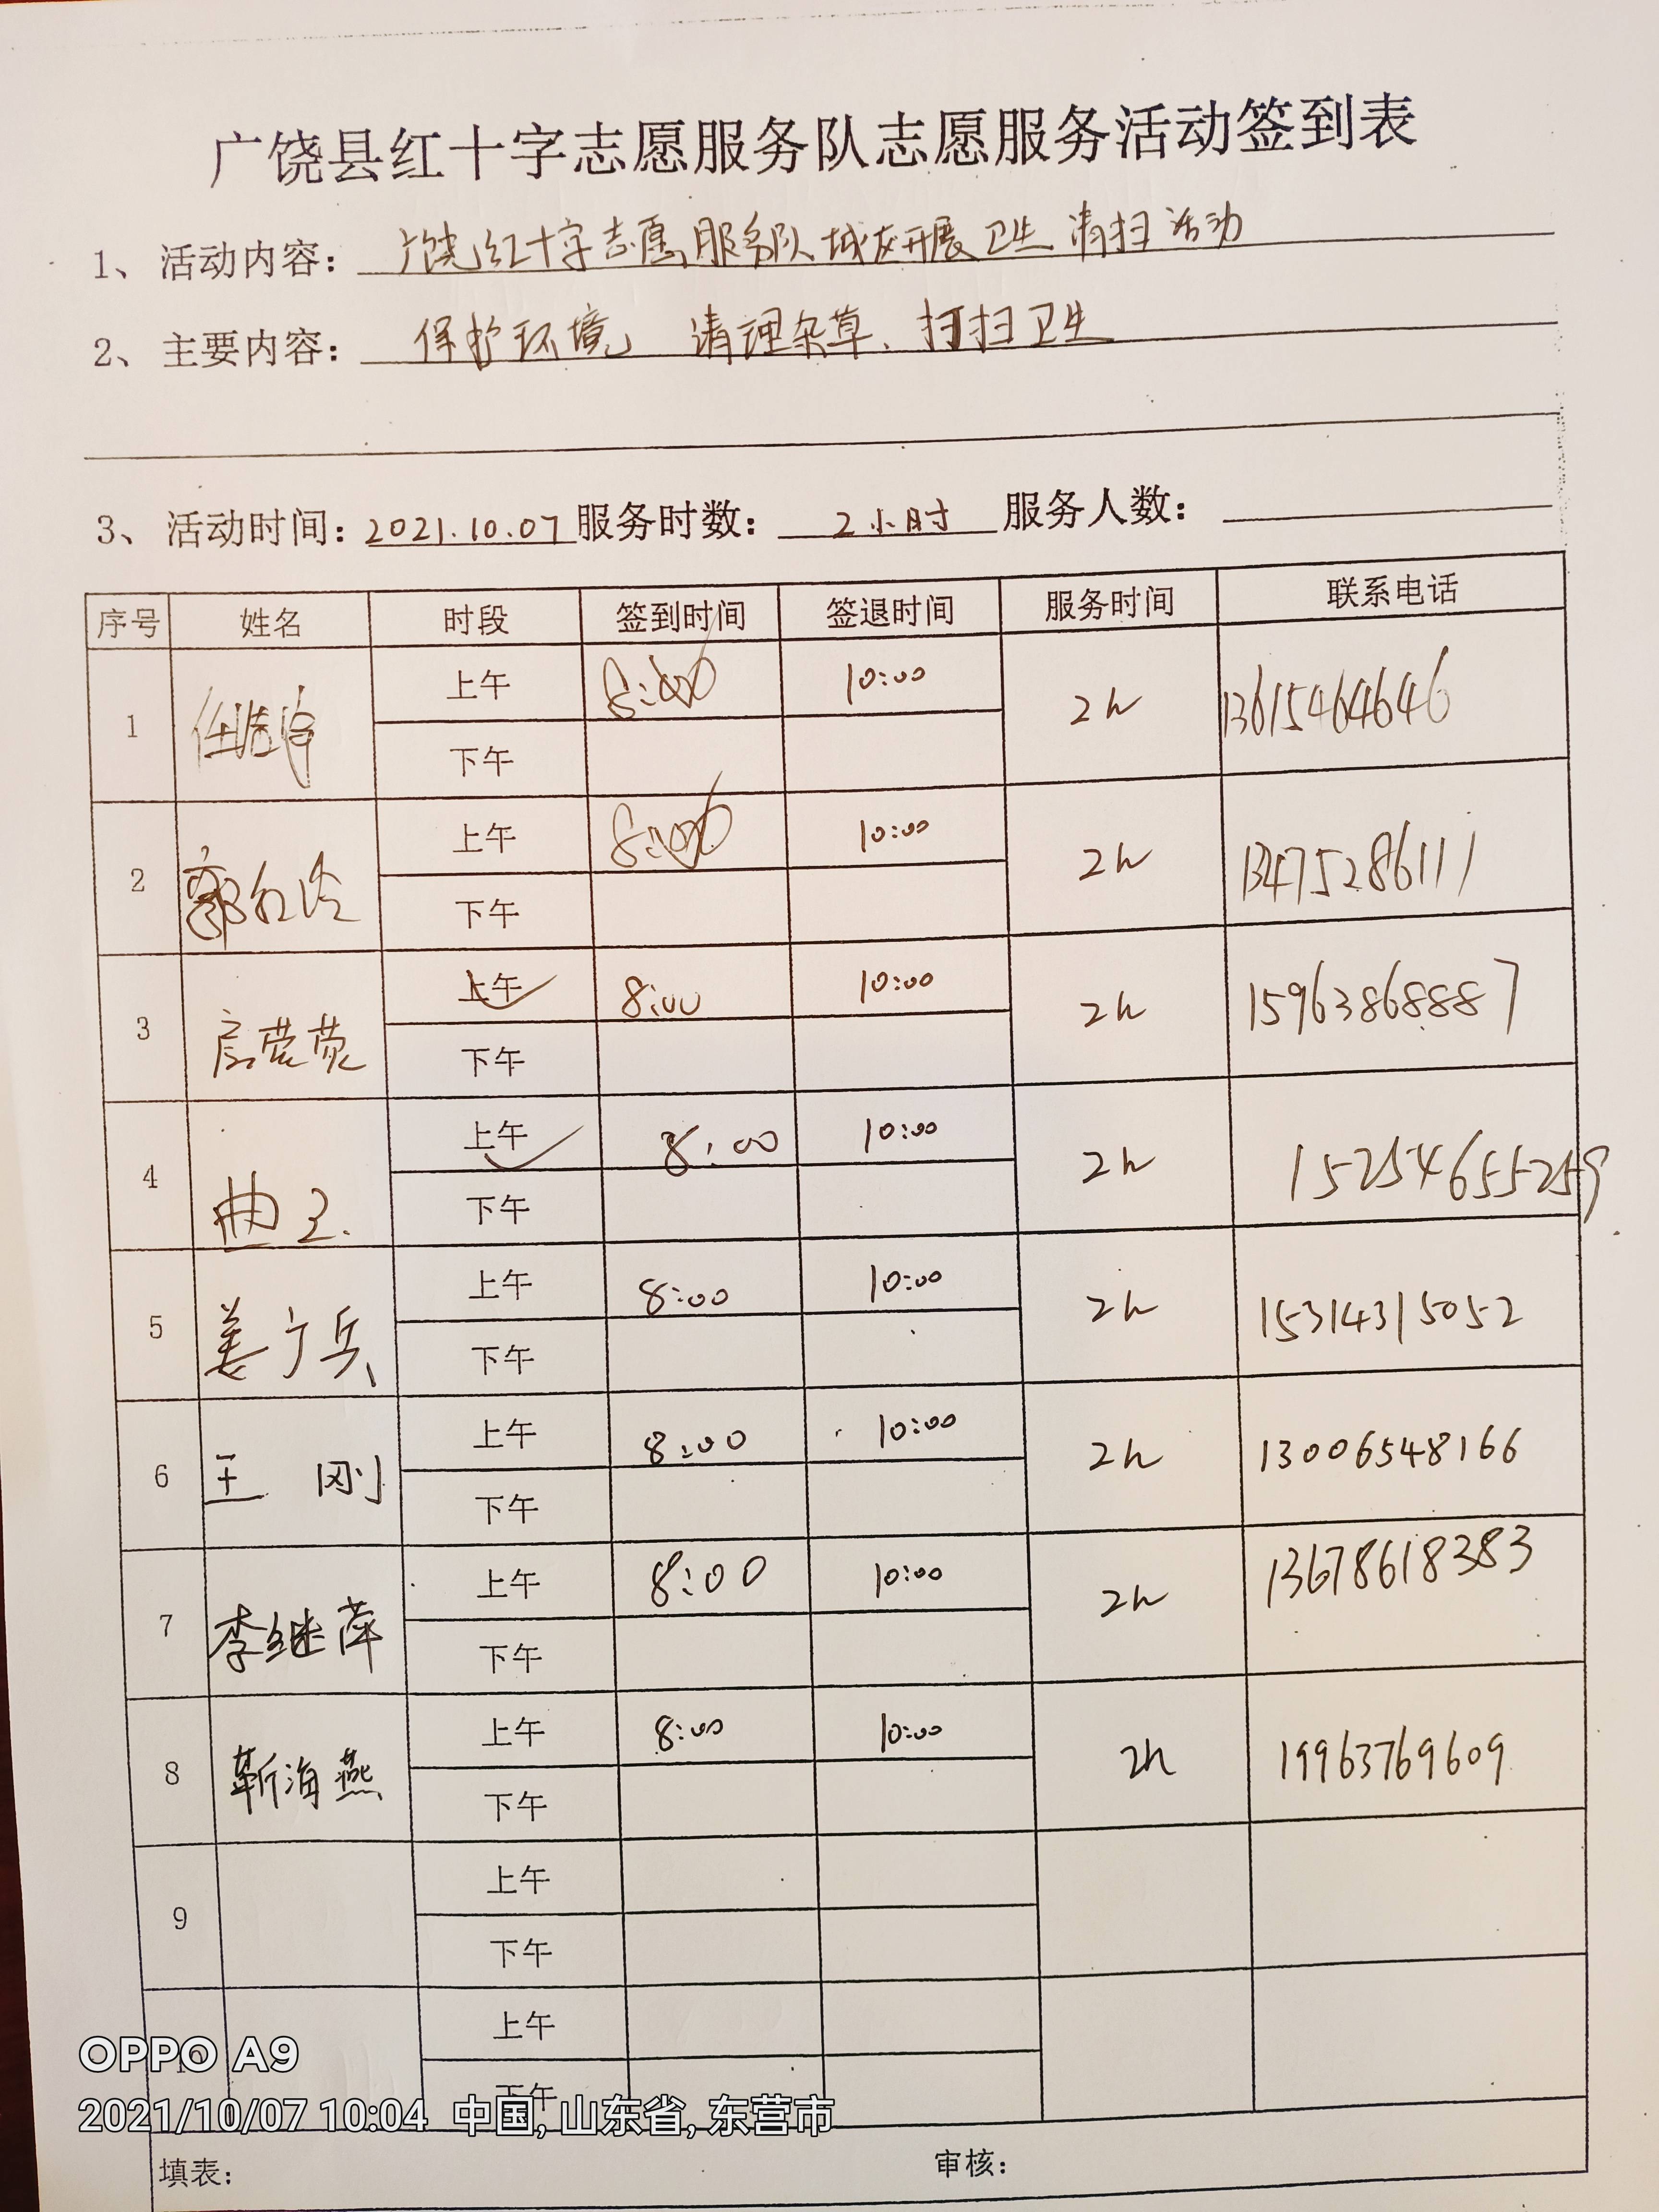 广饶县红十字志愿服务队志愿服务活动签到表
1、活动内容：广饶红十字志愿服务队城区开展卫生清扫活动
2、主要内容：保护环境 清理杂草、打扫卫生
3、活动时间：2021.10.07 服务时数：2小时 服务人数：
序号 姓名 时段 签到时间 签退时间 服务时间 联系电话
1 上午 8:00 10:00 2h 13615464646
下午
2 郭红 上午 8:00 10:00 2h 13475286111
下午
3 上午 8:00 10:00 2h 15963868887
下午
4 曲 上午 8:00 10:00 2h 15254655259
下午
5 姜广兵 上午 8:00 10:00 2h 15314315052
下午
6 王 刚 上午 8:00 10:00 2h 13006548166
下午
7 李继萍 上午 8:00 10:00 2h 13678618383
下午
8 靳海燕 上午 8:00 10:00 2h 19963769609
下午
9 上午
下午
上午
下午
OPPO A9
2021/10/07 10:04 中国, 山东省, 东营市
填表： 审核：